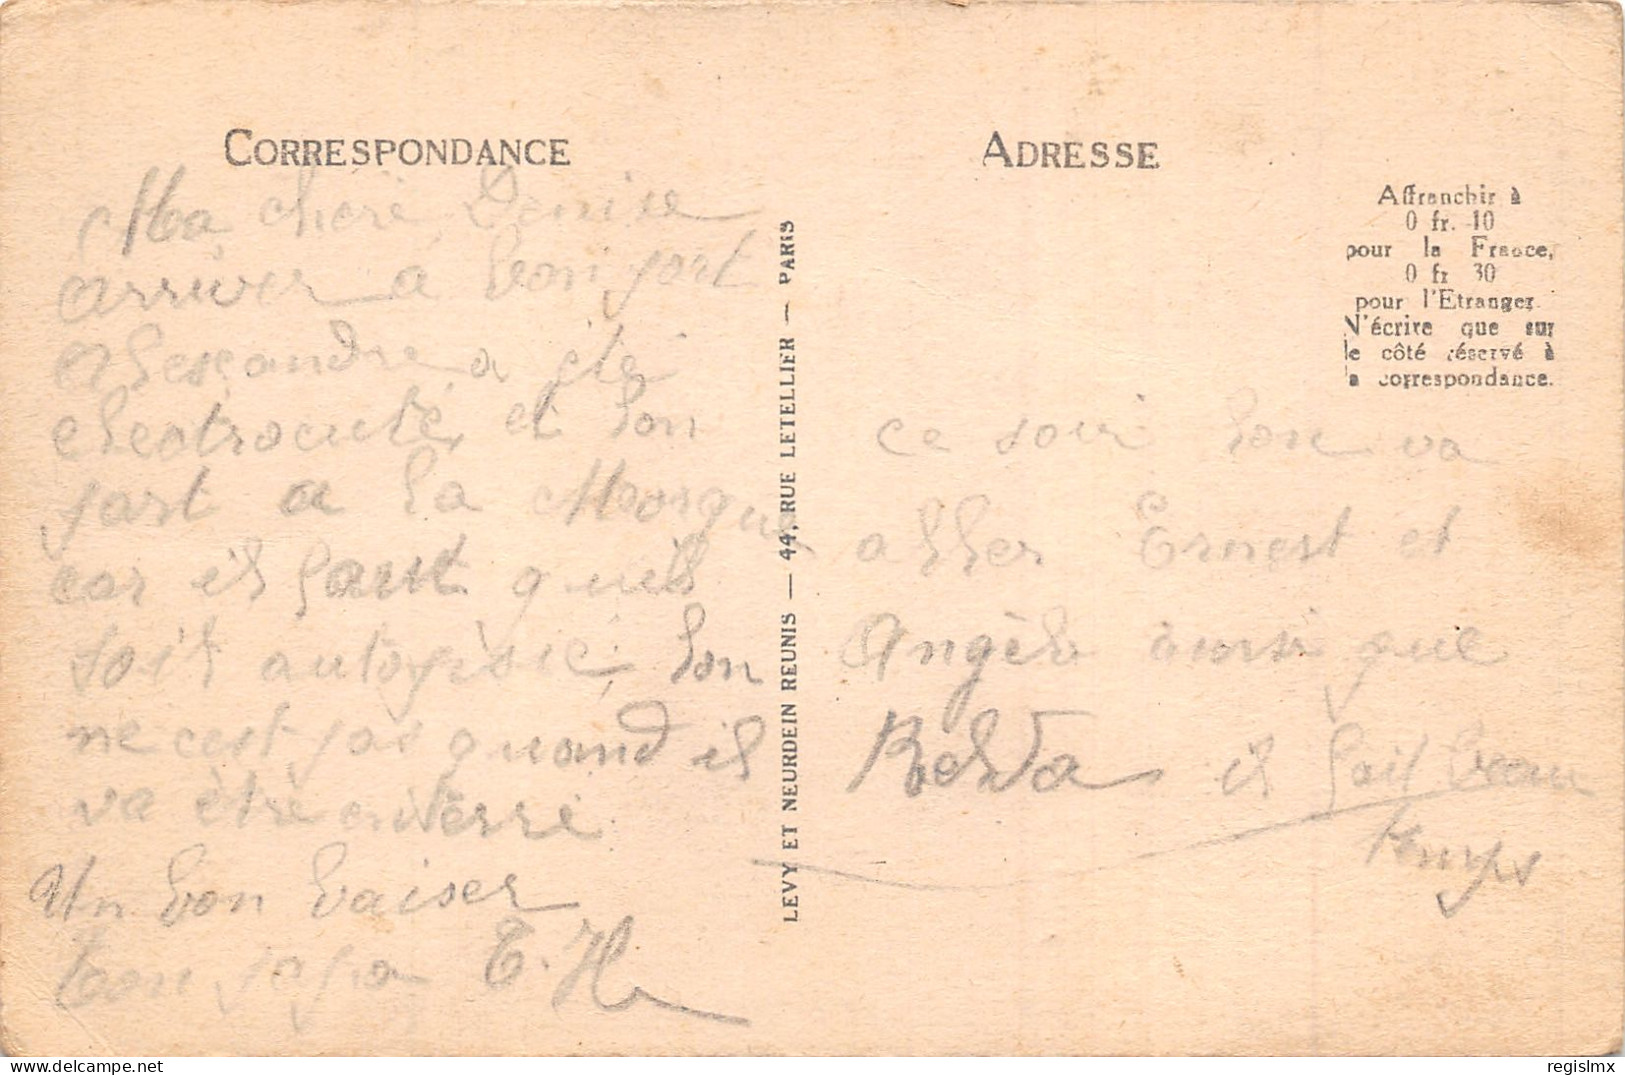 CORRESPONDANCE
Ma chere Denise
arriver a bon port
Alexandre a été
electrocuté et lon
part a la Morgue
car il faut quil
soit autopsié lon
ne c'est pas quand il
va être enterré
Un bon baiser
ton papa E. H
LEVY ET NEURDEIN REUNIS — 44, RUE LETELLIER — PARIS
ADRESSE
Affranchir à
0 fr. 10
pour la France,
0 fr 30
pour l'Etranger.
N'écrire que sur
le côté réservé à
la correspondance.
ce soir lon va
aller Ernest et
Angèle ainsi que
il fait beau
temps
regislmx